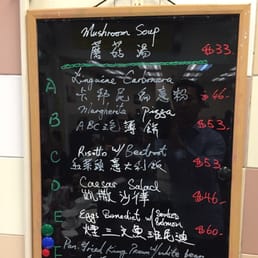 Mushroom Soup
蘑菇湯 $33
A Linguine Carbonara
卡邦尼扁意粉 $46-
B Margherita Pizza
ABC 薄餅 $53-
C Risotto w/ Beetroot
紅菜頭意大利飯 $53-
D Caesar Salad
凱撒沙律 $46-
E Eggs Benedict w/ Smoked Salmon
煙三文魚 $60-
Pan fried King Prawn w/ white bean